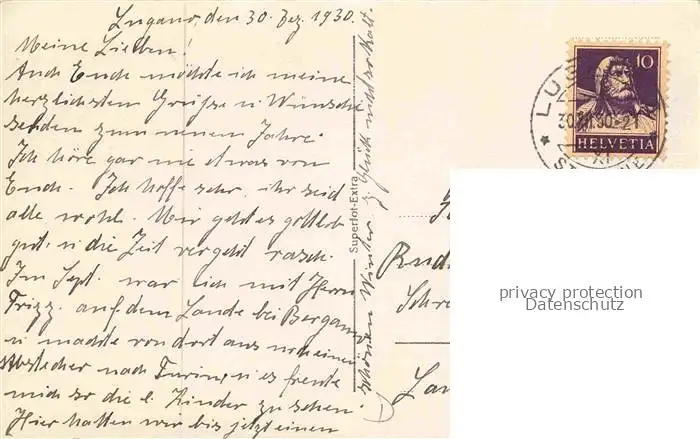 Lugano, den 30. Dez. 1930.
Meine Lieben!
Auch Euch möchte ich meine
herzlichsten Grüsse u. Wünsche
senden zum neuen Jahre.
Ich höre gar nie etwas von
Euch. Ich hoffe sehr, ihr seid
alle wohl. Mir geht es gottlob
gut, u. die Zeit vergeht rasch.
Im Sept. war ich mit Herrn
Frizz. auf dem Lande bei Bergamo
u. machte von dort aus noch einen
Abstecher nach Turin, u. es freute
mich so die l. Kinder zu sehen.
Hier hatten wir bis jetzt einen
schönen Winter, z. Glück nicht so kalt.
Superfot-Extra
10
HELVETIA
LUG
30.XII.30.-21
Rud
Schre
privacy protection
Datenschutz